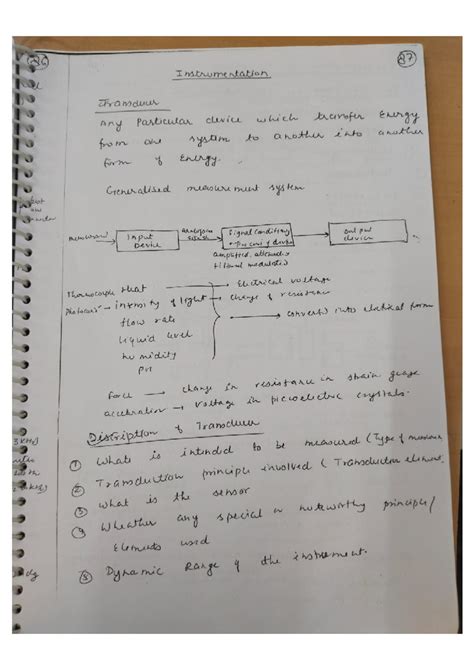 26
27
Instrumentation
Transducer
Any Particular device which transfer Energy
from one system to another into another
form of Energy.
Generalised measurement system
Input Device
Signal conditioning
output device
amplified, attenuated
filtered modulated
Thermocouple heat → Electrical voltage
intensity of light → change of resistance
flow rate → converted into electrical form
liquid level
humidity
PH
force → change in resistance in strain gauge
acceleration → voltage in piezoelectric crystals.
Discription of Transducer
① Whats is intended to be measured (Type of
② Transduction principle involved (Transduction element
③ what is the sensor
④ Wheather any special or noteworthy principle/
Elements used
⑤ Dynamic Range of the instrument.